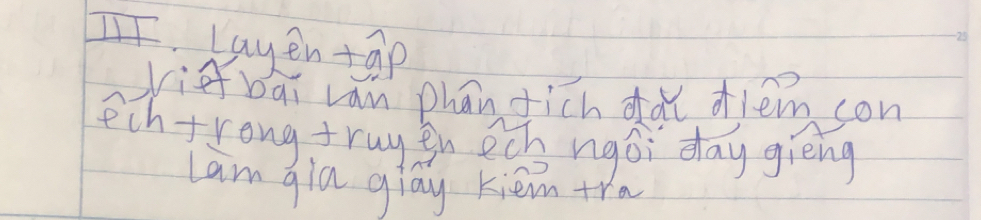 III. Luyên tập
Viết bài văn phân tích đặc điểm con
ếch trong truyện ếch ngồi đáy giếng
Làm gia giấy kiểm tra